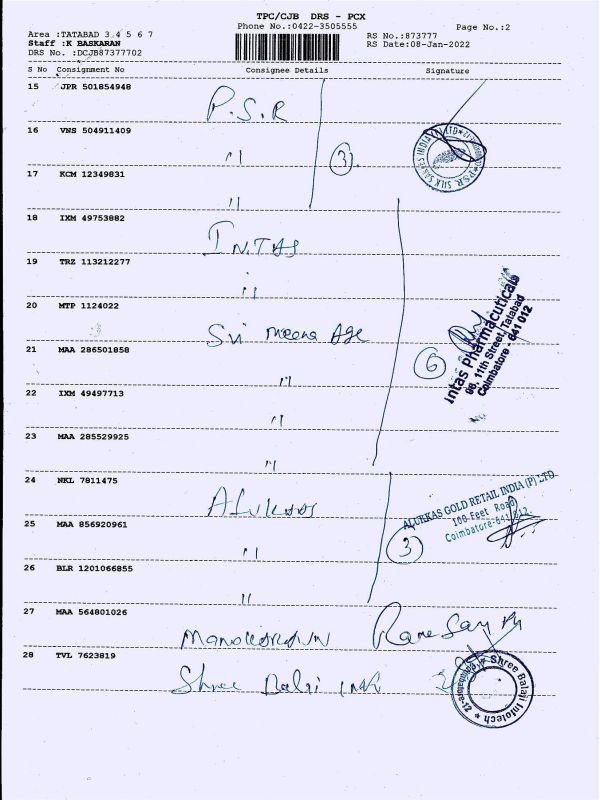 TPC/CJB DRS - PCX
Phone No.:0422-3505555
Page No.:2
Area :TATABAD 3 4 5 6 7
Staff :K BASKARAN
DRS No. :DCJB87377702
RS No.:873777
RS Date:08-Jan-2022
S No Consignment No Consignee Details Signature
15 JPR 501854948 P.S.R
16 VNS 504911409 "
3
17 KCM 12349831 "
18 IXM 49753882 INTAS
19 TRZ 113212277 "
20 MTP 1124022 Sri Meena Age
Intas Pharmaceuticals
98, 11th Street, Tatabad
Coimbatore - 641 012
21 MAA 286501858 "
6
22 IXM 49497713 "
23 MAA 285529925 "
24 NKL 7811475 Alukaas
ALUKKAS GOLD RETAIL INDIA (P) LTD
100-Feet Road
Coimbatore-641 012.
25 MAA 856920961 "
3
26 BLR 1201066855 "
27 MAA 564801026
28 TVL 7623819 Shree Balaji
Shree Balaji Infotech